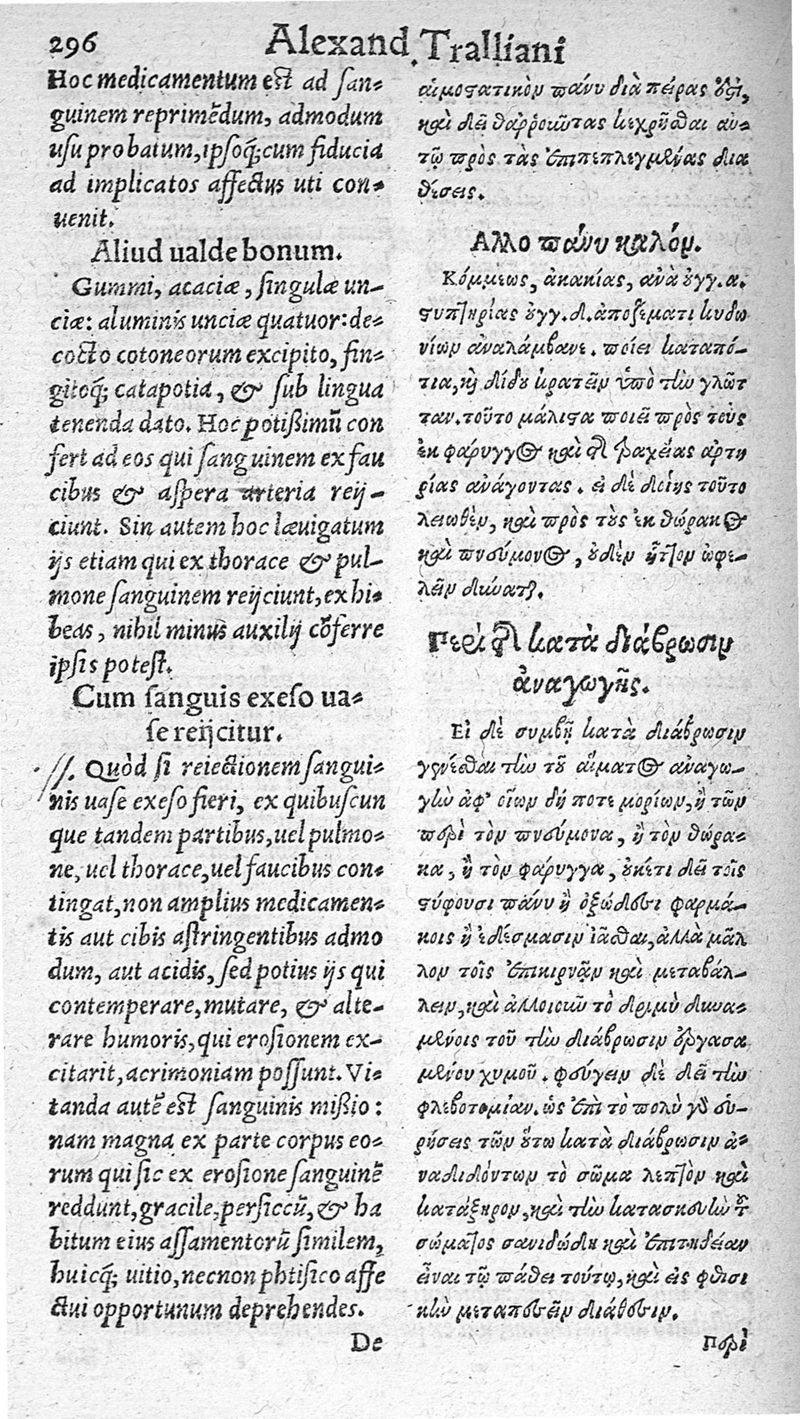 296
Alexand. Tralliani
Hoc medicamentum est ad san-
guinem reprimẽdum, admodum
usu probatum, ipsoq́; cum fiducia
ad implicatos affectus uti con-
uenit.
Aliud ualde bonum.
Gummi, acaciæ, singulæ un-
ciæ: aluminis unciæ quatuor: de-
cocto cotoneorum excipito, fin-
gitoq́; catapotia, & sub lingua
tenenda dato. Hoc potißimũ con
fert ad eos qui sanguinem ex fau
cibus & aspera arteria reij-
ciunt. Sin autem hoc læuigatum
ijs etiam qui ex thorace & pul-
mone sanguinem reijciunt, exhi-
beas, nihil minus auxilij cõferre
ipsis potest.
Cum sanguis exeso ua-
se reijcitur.
Quòd si reiectionem sangui-
nis uase exeso fieri, ex quibuscun
que tandem partibus, uel pulmo-
ne, uel thorace, uel faucibus con-
tingat, non amplius medicamen-
tis aut cibis astringentibus admo
dum, aut acidis, sed potius ijs qui
contemperare, mutare, & alte-
rare humoris, qui erosionem ex-
citarit, acrimoniam possunt. Vi-
tanda autẽ est sanguinis mißio:
nam magna ex parte corpus eo-
rum qui sic ex erosione sanguinẽ
reddunt, gracile, persiccũ, & ha
bitum eius assamentorũ similem,
huicq́; uitio, necnon phtisico affe
ctui opportunum deprehendes.
De
αἱμοστατικὸν πάνυ διὰ πείρας ὅτι,
καὶ δεῖ θαῤῥοῦντας κεχρῆσθαι αὐ-
τῷ πρὸς τὰς ἐπιπεπλεγμένας δια
θέσεις.
Αλλο πάνυ καλόν.
Κόμμεως, ἀκακίας, ἀνὰ οὐγγ. α.
στυπτηρίας οὐγγ. δ. ἀποζέματι κυδω
νίων ἀναλάμβανε. ποίει καταπό-
τια, καὶ δίδου κρατεῖν ὑπὸ τὴν γλῶτ
ταν. τοῦτο μάλιστα ποιεῖ πρὸς τοὺς
ἐκ φάρυγγος καὶ τῆς τραχείας ἀρτη
ρίας ἀνάγοντας. εἰ δὲ δοίης τοῦτο
λειωθὲν, καὶ πρὸς τοὺς ἐκ θώρακος
καὶ πνεύμονος, οὐδὲν ἧττον ὠφε-
λεῖν δύναται.
Περὶ τῆς κατὰ διάβρωσιν
ἀναγωγῆς.
Εἰ δὲ συμβῇ κατὰ διάβρωσιν
γενέσθαι τὴν τοῦ αἵματος ἀναγω-
γὴν ἀφ' οἵων δή ποτε μορίων, ἢ τῶν
περὶ τὸν πνεύμονα, ἢ τὸν θώρα-
κα, ἢ τὸν φάρυγγα, οὐκέτι δεῖ τοῖς
στύφουσι πάνυ ἢ ὀξώδεσι φαρμά-
κοις ἢ ἐδέσμασιν ἰᾶσθαι, ἀλλὰ μᾶλ
λον τοῖς ἐπικιρνᾷν καὶ μεταβάλ-
λειν, καὶ ἀλλοιοῦν τὸ δριμὺ δυνα-
μένοις τοῦ τὴν διάβρωσιν ἐργασα
μένου χυμοῦ. φεύγειν δὲ δεῖ τὴν
φλεβοτομίαν. ὡς ἐπὶ τὸ πολὺ γὰρ εὑ-
ρήσεις τῶν οὕτω κατὰ διάβρωσιν ἀ-
ναδιδόντων τὸ σῶμα λεπτὸν καὶ
κατάξηρον, καὶ τὴν κατασκευὴν τοῦ
σώματος σανιδώδη καὶ ἐπιτηδείαν
εἶναι τῷ πάθει τούτῳ, καὶ εἰς φθισι
κὴν μεταπεσεῖν διάθεσιν.
Περὶ